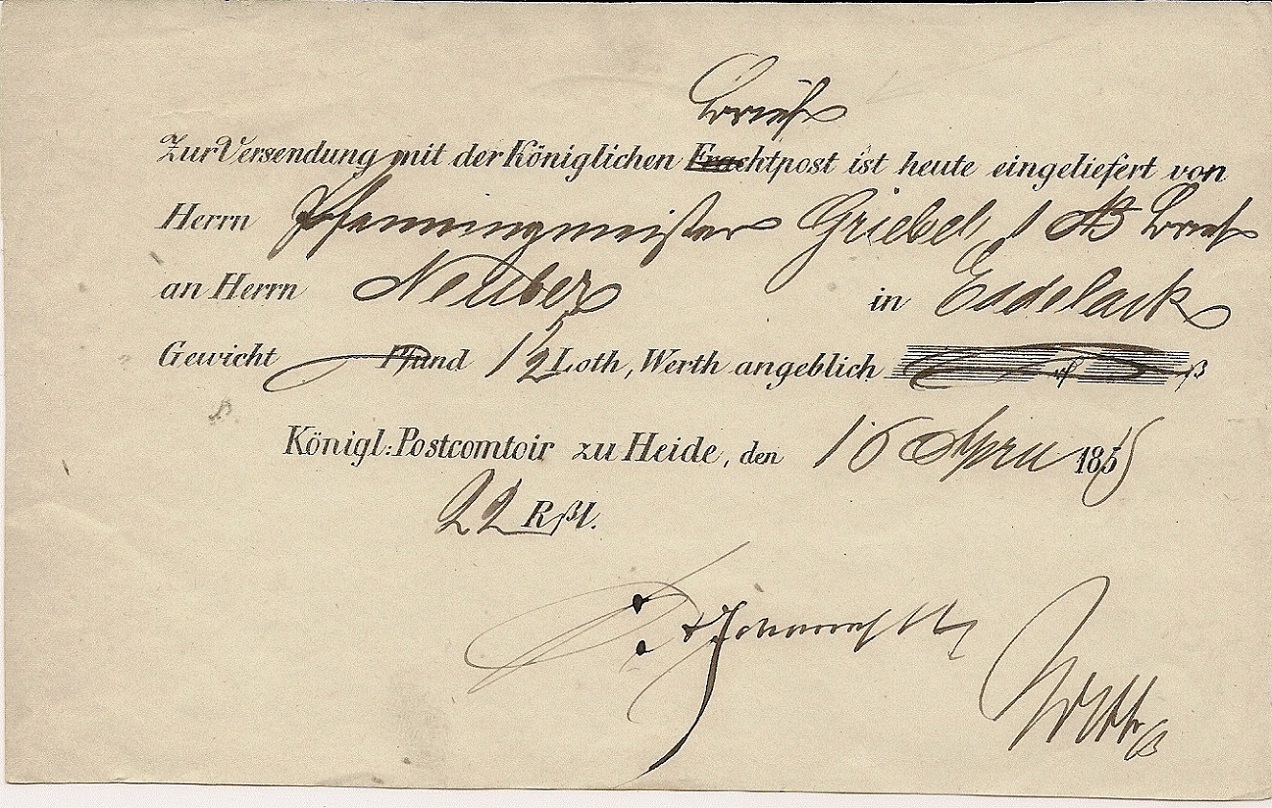 Brief
Zur Versendung mit der Königlichen Frachtpost ist heute eingeliefert von
Herrn Pfenningmeister Griebel, 1 Brief
an Herrn Neuber in Eddelack
Gewicht Pfund 1/2 Loth, Werth angeblich ß
Königl: Postcomtoir zu Heide, den 16 April 1855
22 Rßl.